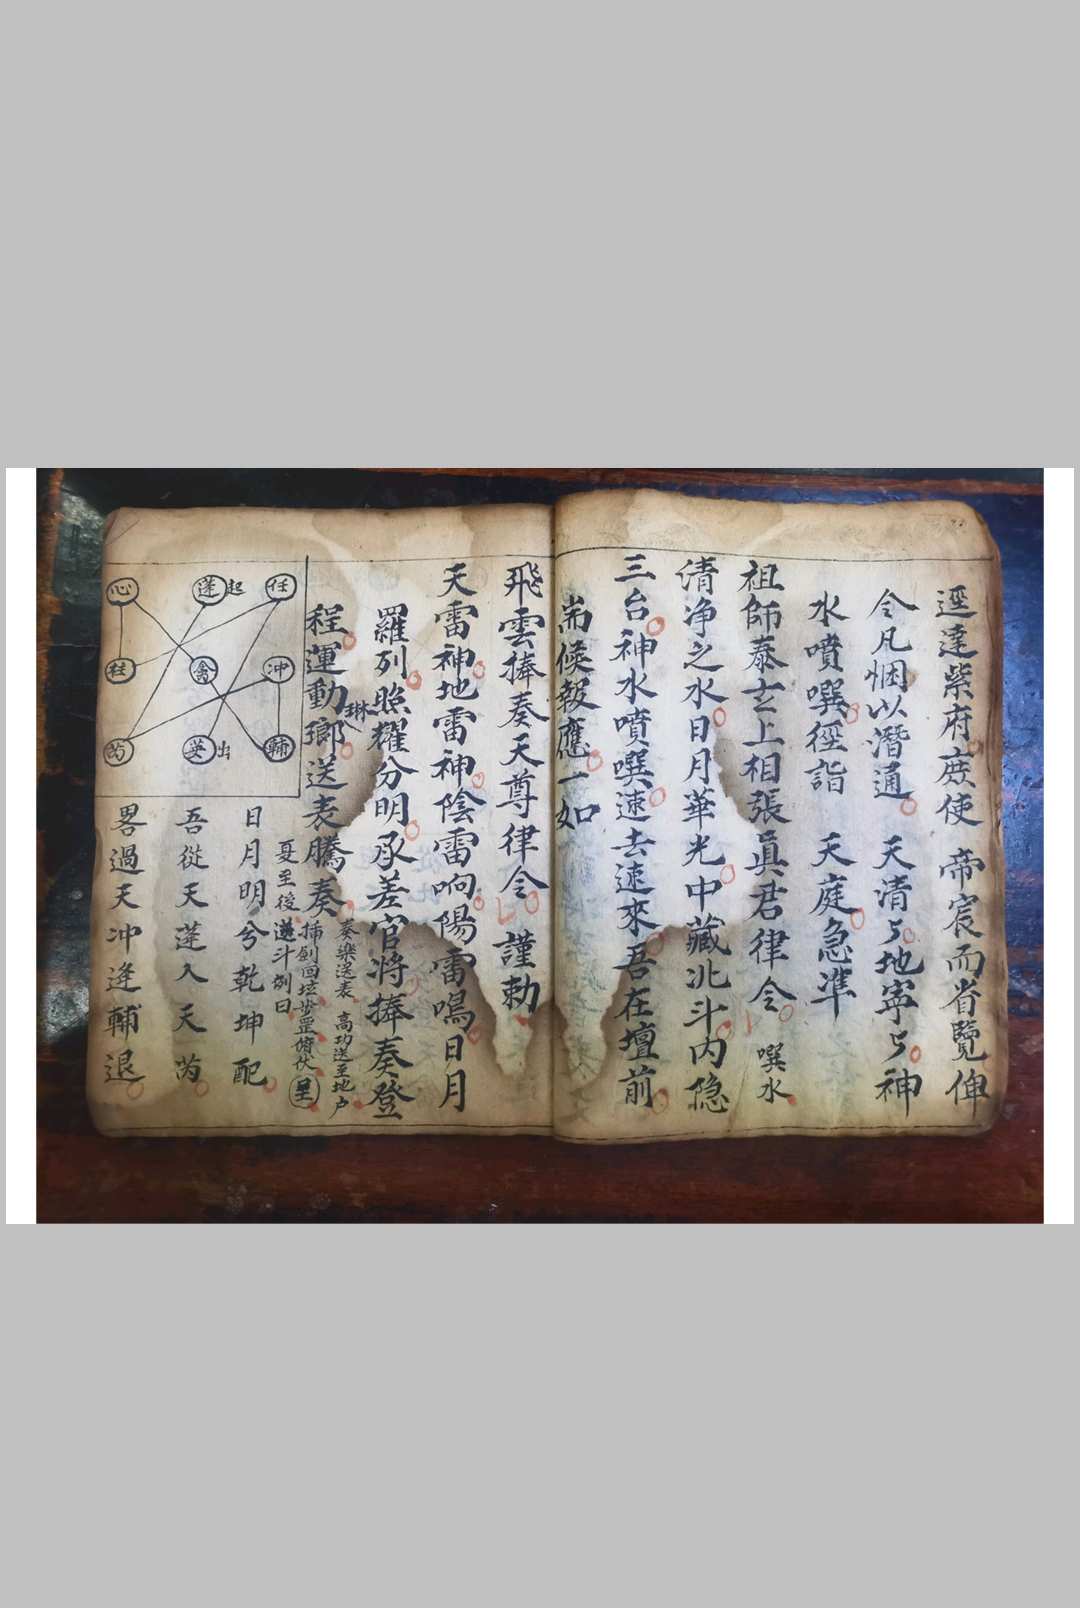 逕達紫府庻使　帝宸而省覽俾
令凡悃以潛通　天清ㄅ地寧ㄅ神
水噴噀徑詣　天庭急準
祖師泰玄上相張眞君律令　噀水
清浄之水日月華光中藏北斗内隐
三台神水噴噀速去速來吾在壇前
耑候報應一如
飛雲捧奏天尊律令　謹勅
天雷神地雷神陰雷响陽雷鳴日月
羅列照耀分明承差官將捧奏登
程運動瑯琳送表騰奏
奏樂送表　高功送至地户
揷劍回壇步罡俯伏呈
夏至後遊斗例曰
任
蓬起
心
冲
禽
柱
輔
英出
芮
日月明兮乾坤配
吾從天蓬入天芮
畧過天冲逢輔退